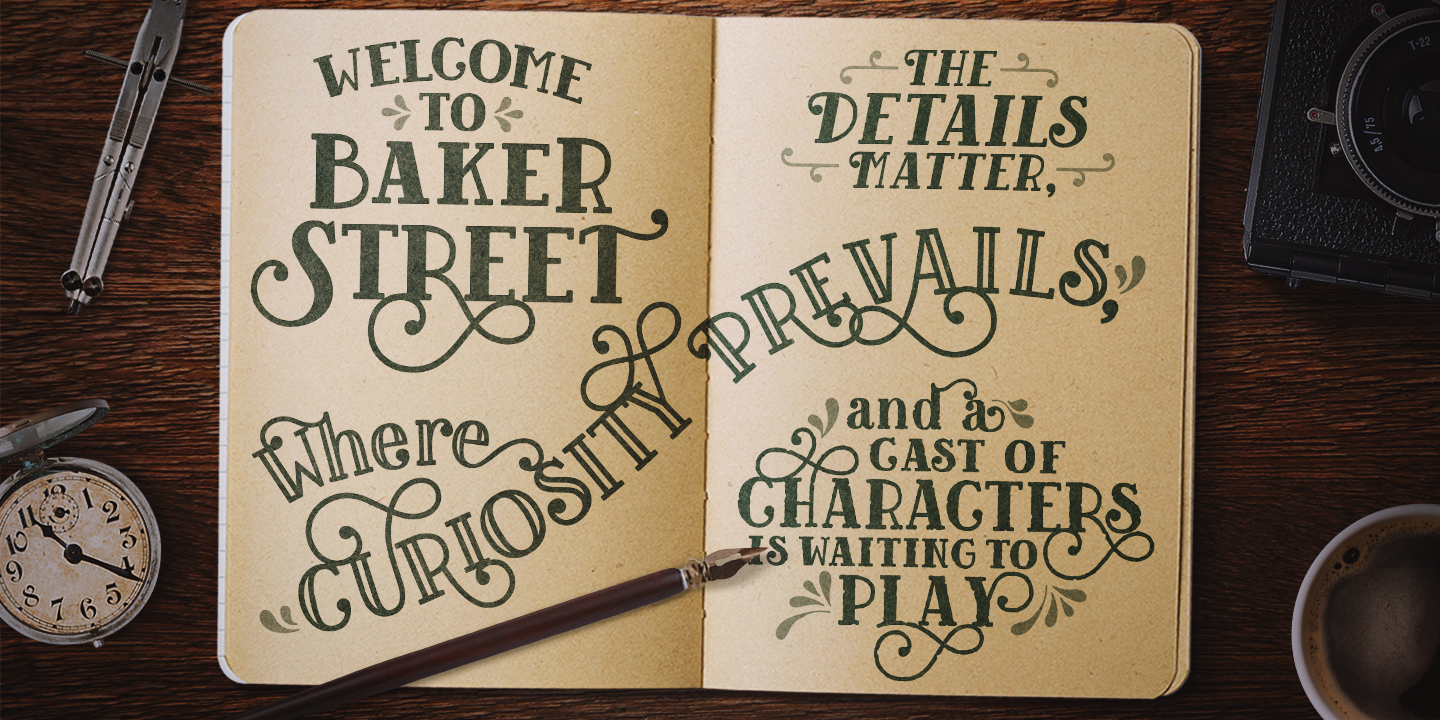 WELCOME
TO
BAKER
STREET
Where
CURIOSITY PREVAILS,
THE
DETAILS
MATTER,
and a
CAST OF
CHARACTERS
IS WAITING TO
PLAY
T-22
4,5/75
1
2
3
4
5
6
7
8
9
10
11